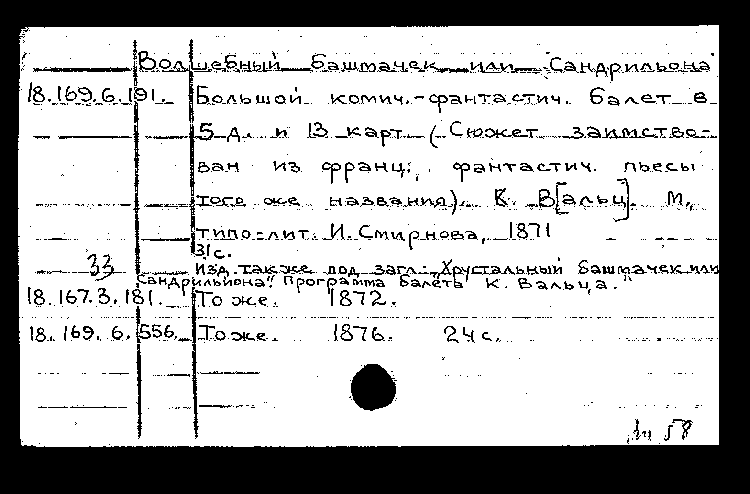 Волшебный башмачек или Сандрильона
18.169.6.191. Большой комич.-фантастич. балет в
5 д. и 13 карт (Сюжет заимство-
ван из франц. фантастич. пьесы
того же названия). К. В[альц]. М.,
типо-лит. И. Смирнова, 1871
31с.
33 Изд. также под загл. „Хрустальный башмачек или
Сандрильона". Программа балета К. Вальца."
18.167.3.181. То же. 1872.
18.169.6.556. То же. 1876. 24с.
58